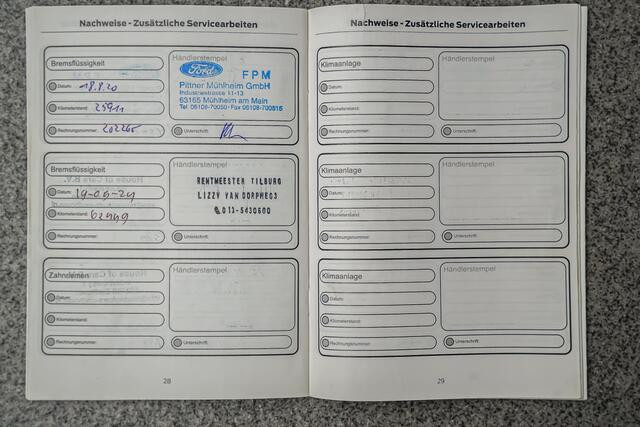 Nachweise - Zusätzliche Servicearbeiten
Bremsflüssigkeit
Datum: 18.9.20
Kilometerstand: 25911
Rechnungsnummer: 202265
Händlerstempel
Ford FPM
Pittner Mühlheim GmbH
Industriestrasse 11-13
63165 Mühlheim am Main
Tel 06108-70050 - Fax 06108-700515
Unterschrift:
Bremsflüssigkeit
Datum: 19-04-24
Kilometerstand: 62449
Rechnungsnummer:
Händlerstempel
RENTMEESTER TILBURG
LIZZY VAN DORPWEG3
013-5430600
Unterschrift:
Zahnriemen
Datum:
Kilometerstand:
Rechnungsnummer:
Händlerstempel
Unterschrift:
28
Nachweise - Zusätzliche Servicearbeiten
Klimaanlage
Datum:
Kilometerstand:
Rechnungsnummer:
Händlerstempel
Unterschrift:
Klimaanlage
Datum:
Kilometerstand:
Rechnungsnummer:
Händlerstempel
Unterschrift:
Klimaanlage
Datum:
Kilometerstand:
Rechnungsnummer:
Händlerstempel
Unterschrift:
29